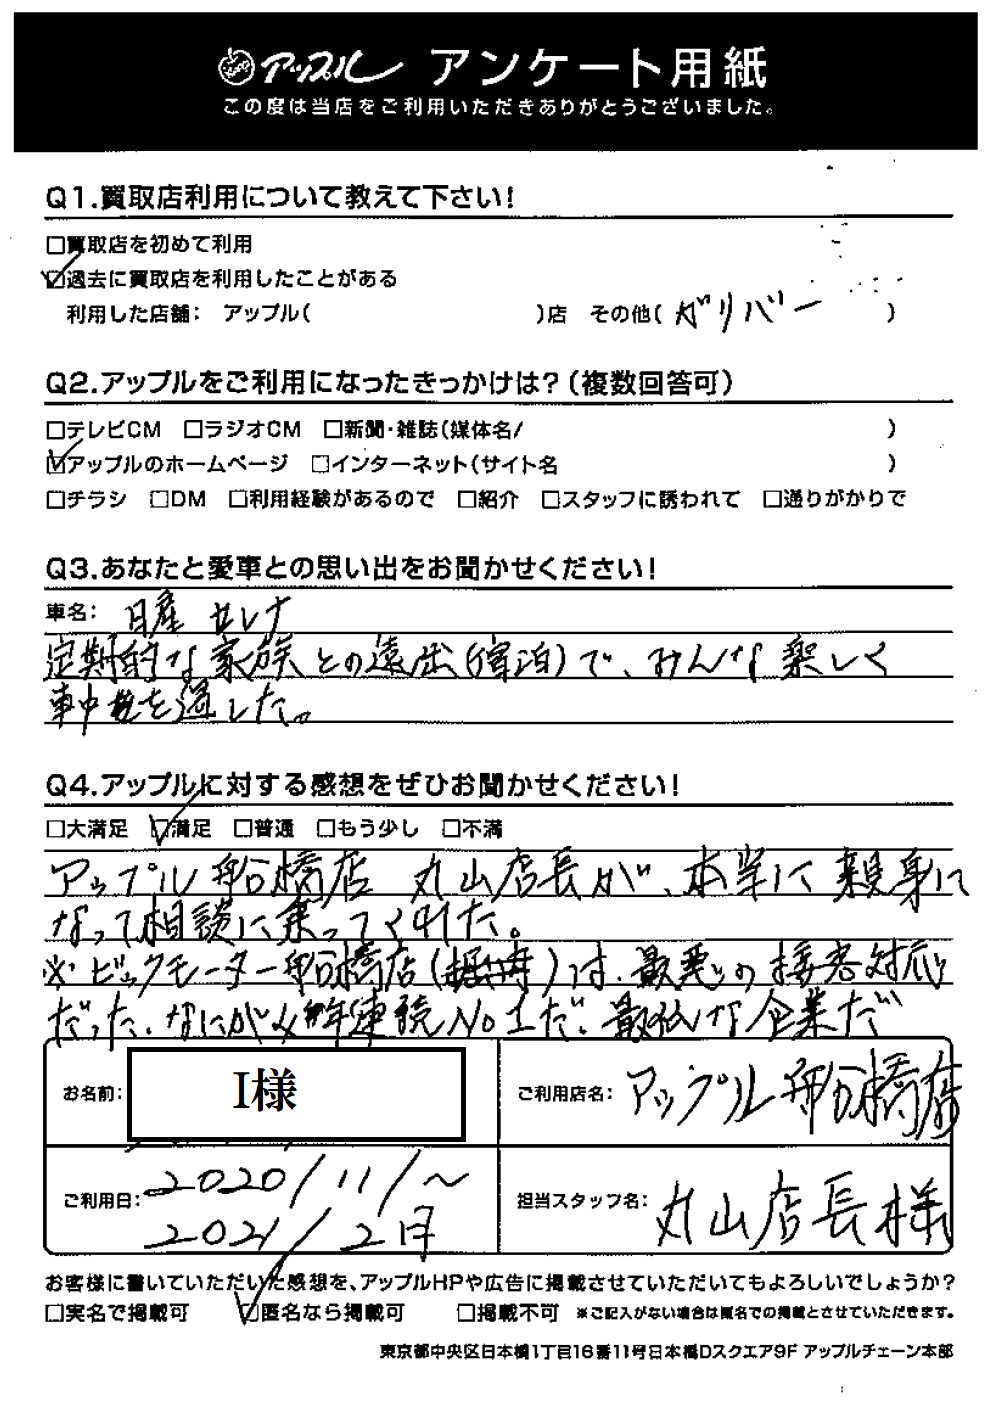 アップル アンケート用紙
この度は当店をご利用いただきありがとうございました。
Q1.買取店利用について教えて下さい!
□買取店を初めて利用
☑過去に買取店を利用したことがある
利用した店舗: アップル( )店 その他( ガリバー )
Q2.アップルをご利用になったきっかけは?(複数回答可)
□テレビCM □ラジオCM □新聞・雑誌(媒体名/ )
☑アップルのホームページ □インターネット(サイト名 )
□チラシ □DM □利用経験があるので □紹介 □スタッフに誘われて □通りがかりで
Q3.あなたと愛車との思い出をお聞かせください!
車名: 日産 セレナ
定期的な家族との遠出(宿泊)で、みんな楽しく
車中を過した。
Q4.アップルに対する感想をぜひお聞かせください!
□大満足 ☑満足 □普通 □もう少し □不満
アップル 橋店 丸山店長が、本当に親身に
なって相談に乗ってくれた。
※ビックモーター橋店()は、最悪の接客対応
だった、なにが年連続No1だ、最低な企業だ
お名前: I様
ご利用店名: アップル橋店
ご利用日: 2020/11/~
2021/2月
担当スタッフ名: 丸山店長様
お客様に書いていただいた感想を、アップルHPや広告に掲載させていただいてもよろしいでしょうか?
□実名で掲載可 ☑匿名なら掲載可 □掲載不可 ※ご記入がない場合は匿名での掲載とさせていただきます。
東京都中央区日本橋1丁目16番11号日本橋Dスクエア9F アップルチェーン本部